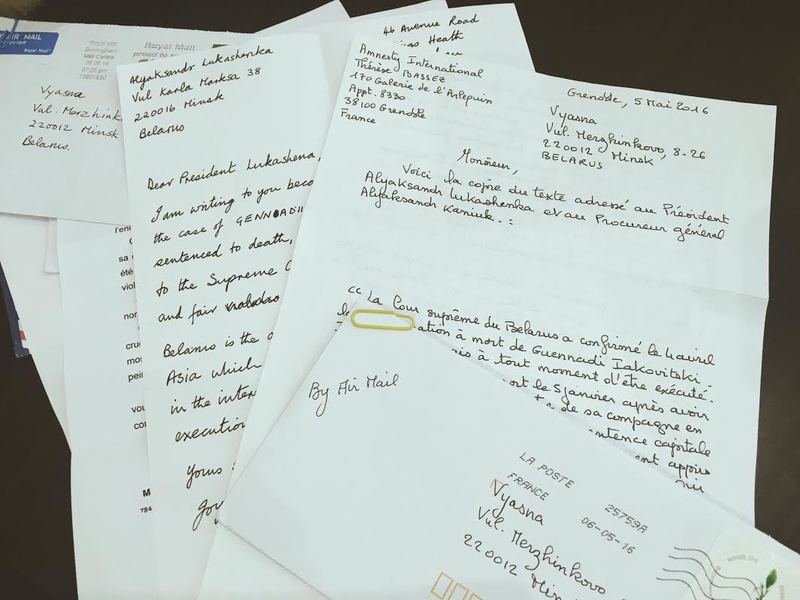 AIR MAIL
Royal Mail
Royal Mail
proud to
Royal Mail
Birmingham
Mail Centre
Vyasna
Vul. Merzhink
220012 Minsk
Belarus.
Alyaksandr Lukashenka
Vul Karla Marksa 38
220016 Minsk
Belarus
Dear President Lukashena,
I am writing to you beca
the case of GENNADII
sentenced to death,
to the Supreme C
and fair
Belarus is the o
Asia which
in the inten
execution
Yours
You
été
viol
non
cru
mo
pein
vou
con
M
784
46 Avenue Road
Heath
Amnesty International
Thérèse BASSEZ
170 Galerie de l'Arlequin
Appt. 8330
38100 Grenoble
France
Grenoble, 5 Mai 2016
Vyasna
Vul. Merzhinkovo, 8-26
220012 Minsk
BELARUS
Monsieur,
Voici la copie du texte adressé au Président
Alyaksandr Lukashenka et au Procureur général
Alyaksandr Kaniuk. :
<< La Cour suprême du Belarus a confirmé le 4 avril
la ation à mort de Guennadi Iakovitski.
is à tout moment d'être exécuté.
ort le 5 janvier après avoir
de sa compagne en
entence capitale
ent appuy
By Air Mail
LA POSTE 25759A
FRANCE 06-05-16
Vyasna
Vul. Merzhinkovo
220012 Min